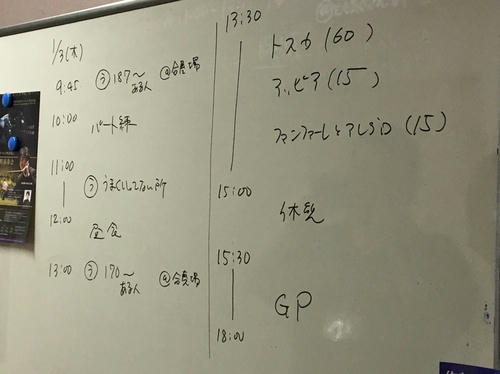 1/3(木)
9:45 ㋒ 187〜 @合奏場
ある人
10:00
パート練
11:00
|
㋒ うまくしてない所
12:00
昼食
13:00 ㋒ 170〜 @合奏場
ある人
13:30
|
トスカ (60)
アッピア (15)
ファンファーレとアレグロ (15)
15:00
休憩
15:30
|
GP
18:00